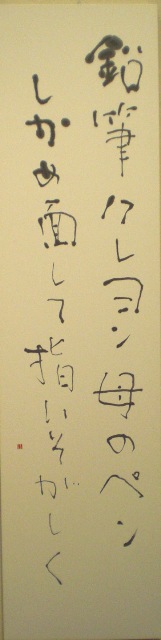 鉛筆クレヨン母のペン
しかめ面して指いそがしく